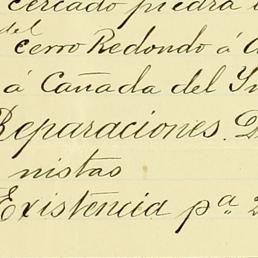 cercado piedra
del
cerro Redondo á
á Cañada del
Reparaciones.
nistas
Existencia pª